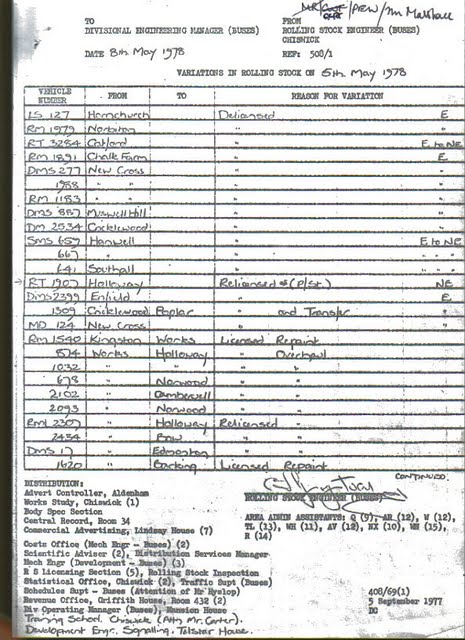 MR/ /AEW/Mr Marshall
TO FROM
DIVISIONAL ENGINEERING MANAGER (BUSES) ROLLING STOCK ENGINEER (BUSES)
CHISWICK
DATE 8th May 1978 REF: 508/1
VARIATIONS IN ROLLING STOCK ON 5th May 1978
VEHICLE NUMBER FROM TO REASON FOR VARIATION
LS 127 Hornchurch Delicensed E
RM 1979 Norbiton "
RT 3284 Catford " E to NE
RM 1891 Chalk Farm " E
DMS 277 New Cross "
1988 " " "
RM 1183 " " "
DMS 887 Muswell Hill "
DM 2534 Cricklewood "
SMS 659 Hanwell " E to NE
667 " " " " "
641 Southall " " " "
RT 1907 Holloway Relicensed (P/St.) NE
DMS 2399 Enfield " E
1309 Cricklewood Poplar " and Transfer "
MD 124 New Cross " "
RM 1540 Kingston Works Licensed Repaint
874 Works Holloway " Overhaul
1032 " " " "
678 " Norwood " "
2102 " Camberwell " "
2093 " Norwood " "
RML 2307 " Holloway Relicensed "
2454 " Bow " "
DMS 17 " Edmonton " "
1620 " Barking Licensed Repaint
CONTINUED.
DISTRIBUTION:
Advert Controller, Aldenham
Works Study, Chiswick (1)
Body Spec Section
Central Record, Room 34
Commercial Advertising, Lindsay House (7)
Costs Office (Mech Engr - Buses) (2)
Scientific Adviser (2), Distribution Services Manager
Mech Engr (Development - Buses) (3)
R S Licensing Section (5), Rolling Stock Inspection
Statistical Office, Chiswick (2), Traffic Supt (Buses)
Schedules Supt - Buses (Attention of Mr Hyslop)
Revenue Office, Griffith House, Room 432 (2)
Div Operating Manager (Buses), Mansion House
Training School, Chiswick (Attn Mr. Carter).
Development Engr. Signalling, Telstar House.
ROLLING STOCK ENGINEER (BUSES)
AREA ADMIN ASSISTANTS: Q (9), AR (12), W (12),
TL (13), WH (11), AV (12), NX (10), WN (15),
R (14)
408/69(1)
5 September 1977
DO